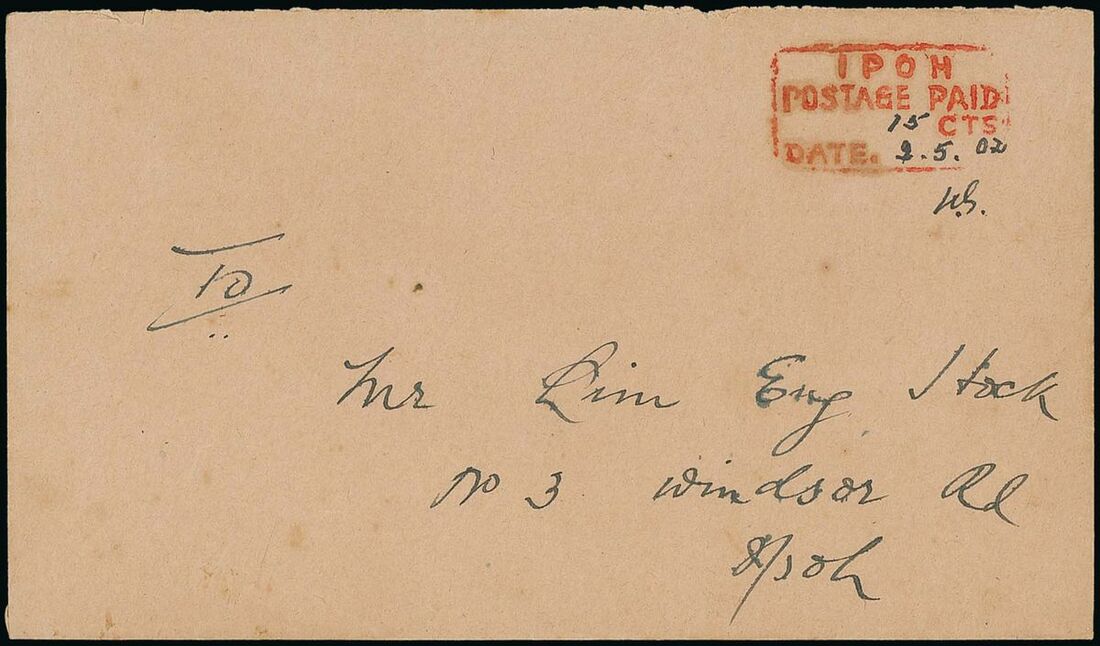 IPOH
POSTAGE PAID
15 CTS
DATE. 2.5.02
To
Mr Lim Eng Hock
No 3 Windsor Rd
Ipoh